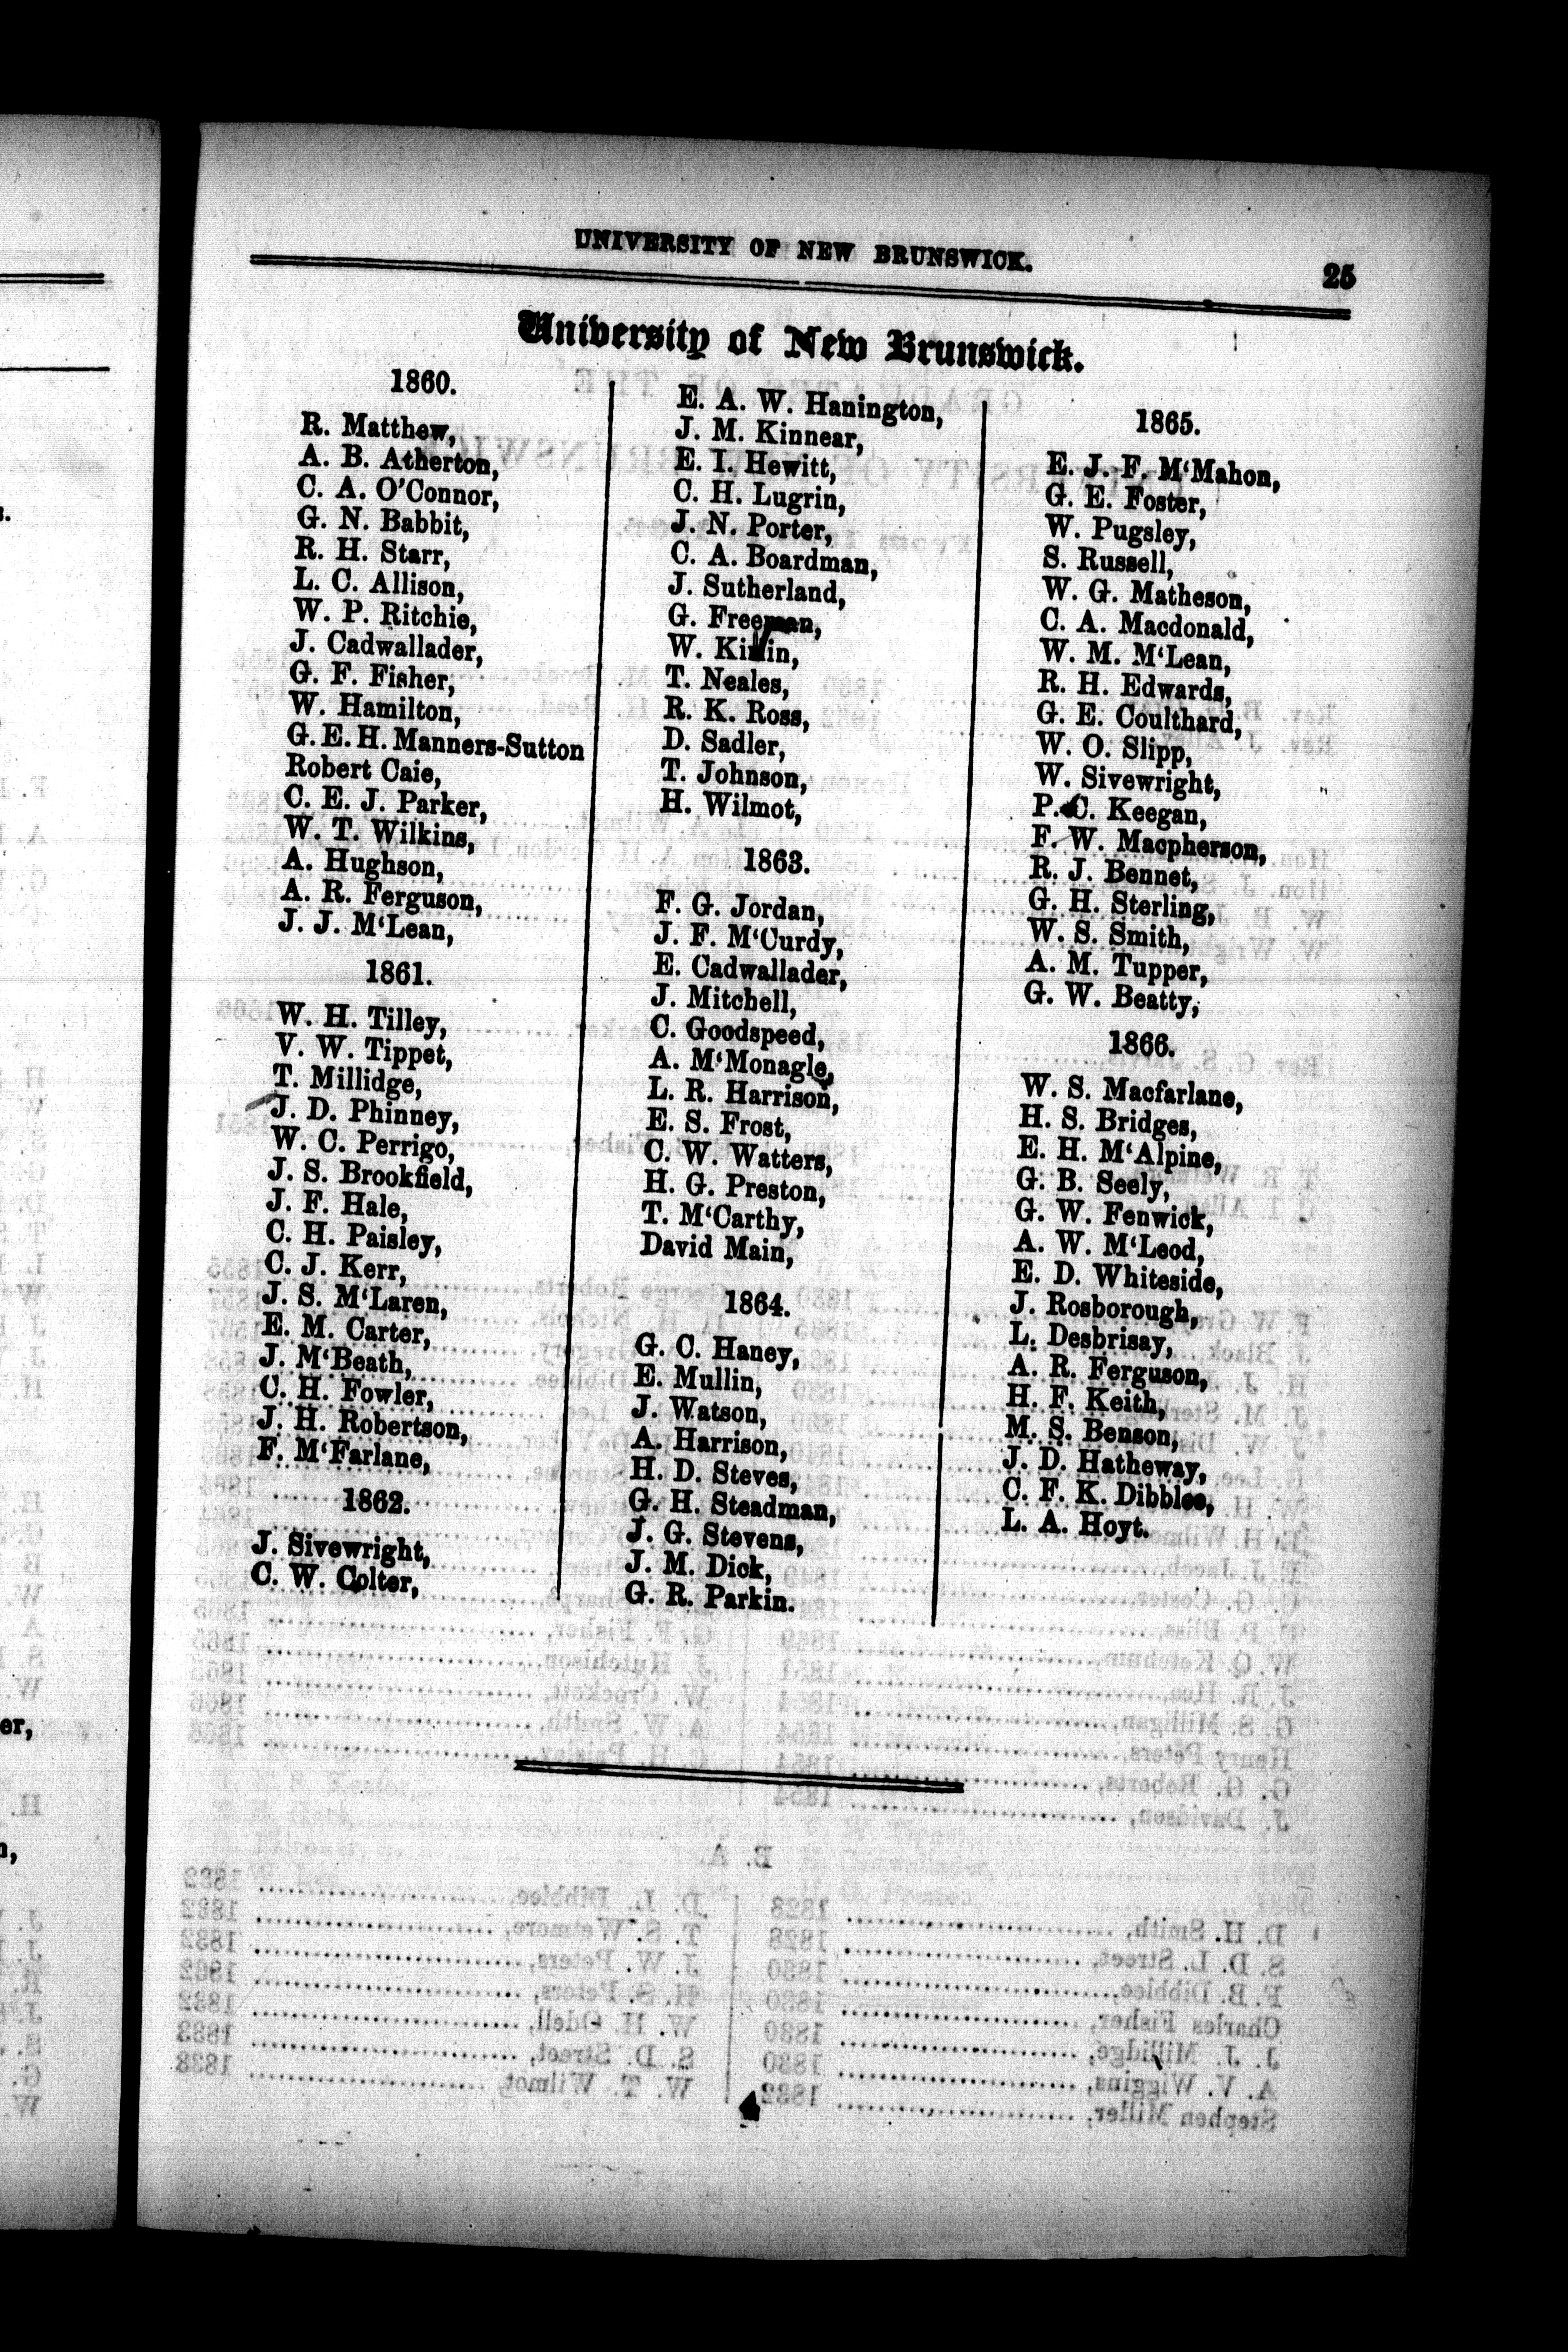 UNIVERSITY OF NEW BRUNSWICK.
25
University of New Brunswick.
1860.
R. Matthew,
A. B. Atherton,
C. A. O'Connor,
G. N. Babbit,
R. H. Starr,
L. C. Allison,
W. P. Ritchie,
J. Cadwallader,
G. F. Fisher,
W. Hamilton,
G. E. H. Manners-Sutton
Robert Caie,
C. E. J. Parker,
W. T. Wilkins,
A. Hughson,
A. R. Ferguson,
J. J. M‘Lean,
1861.
W. H. Tilley,
V. W. Tippet,
T. Millidge,
J. D. Phinney,
W. C. Perrigo,
J. S. Brookfield,
J. F. Hale,
C. H. Paisley,
C. J. Kerr,
J. S. M‘Laren,
E. M. Carter,
J. M‘Beath,
C. H. Fowler,
J. H. Robertson,
F. M‘Farlane,
1862.
J. Sivewright,
C. W. Colter,
E. A. W. Hanington,
J. M. Kinnear,
E. I. Hewitt,
C. H. Lugrin,
J. N. Porter,
C. A. Boardman,
J. Sutherland,
G. Freeman,
W.
T. Neales,
R. K. Ross,
D. Sadler,
T. Johnson,
H. Wilmot,
1863.
F. G. Jordan,
J. F. M‘Curdy,
E. Cadwallader,
J. Mitchell,
C. Goodspeed,
A. M‘Monagle,
L. R. Harrison,
E. S. Frost,
C. W. Watters,
H. G. Preston,
T. M‘Carthy,
David Main,
1864.
G. C. Haney,
E. Mullin,
J. Watson,
A. Harrison,
H. D. Steves,
G. H. Steadman,
J. G. Stevens,
J. M. Dick,
G. R. Parkin.
1865.
E. J. F. M‘Mahon,
G. E. Foster,
W. Pugsley,
S. Russell,
W. G. Matheson,
C. A. Macdonald,
W. M. M‘Lean,
R. H. Edwards,
G. E. Coulthard,
W. O. Slipp,
W. Sivewright,
P. C. Keegan,
F. W. Macpherson,
R. J. Bennet,
G. H. Sterling,
W. S. Smith,
A. M. Tupper,
G. W. Beatty,
1866.
W. S. Macfarlane,
H. S. Bridges,
E. H. M‘Alpine,
G. B. Seely,
G. W. Fenwick,
A. W. M‘Leod,
E. D. Whiteside,
J. Rosborough,
L. Desbrisay,
A. R. Ferguson,
H. F. Keith,
M. S. Benson,
J. D. Hatheway,
C. F. K. Dibblee,
L. A. Hoyt.